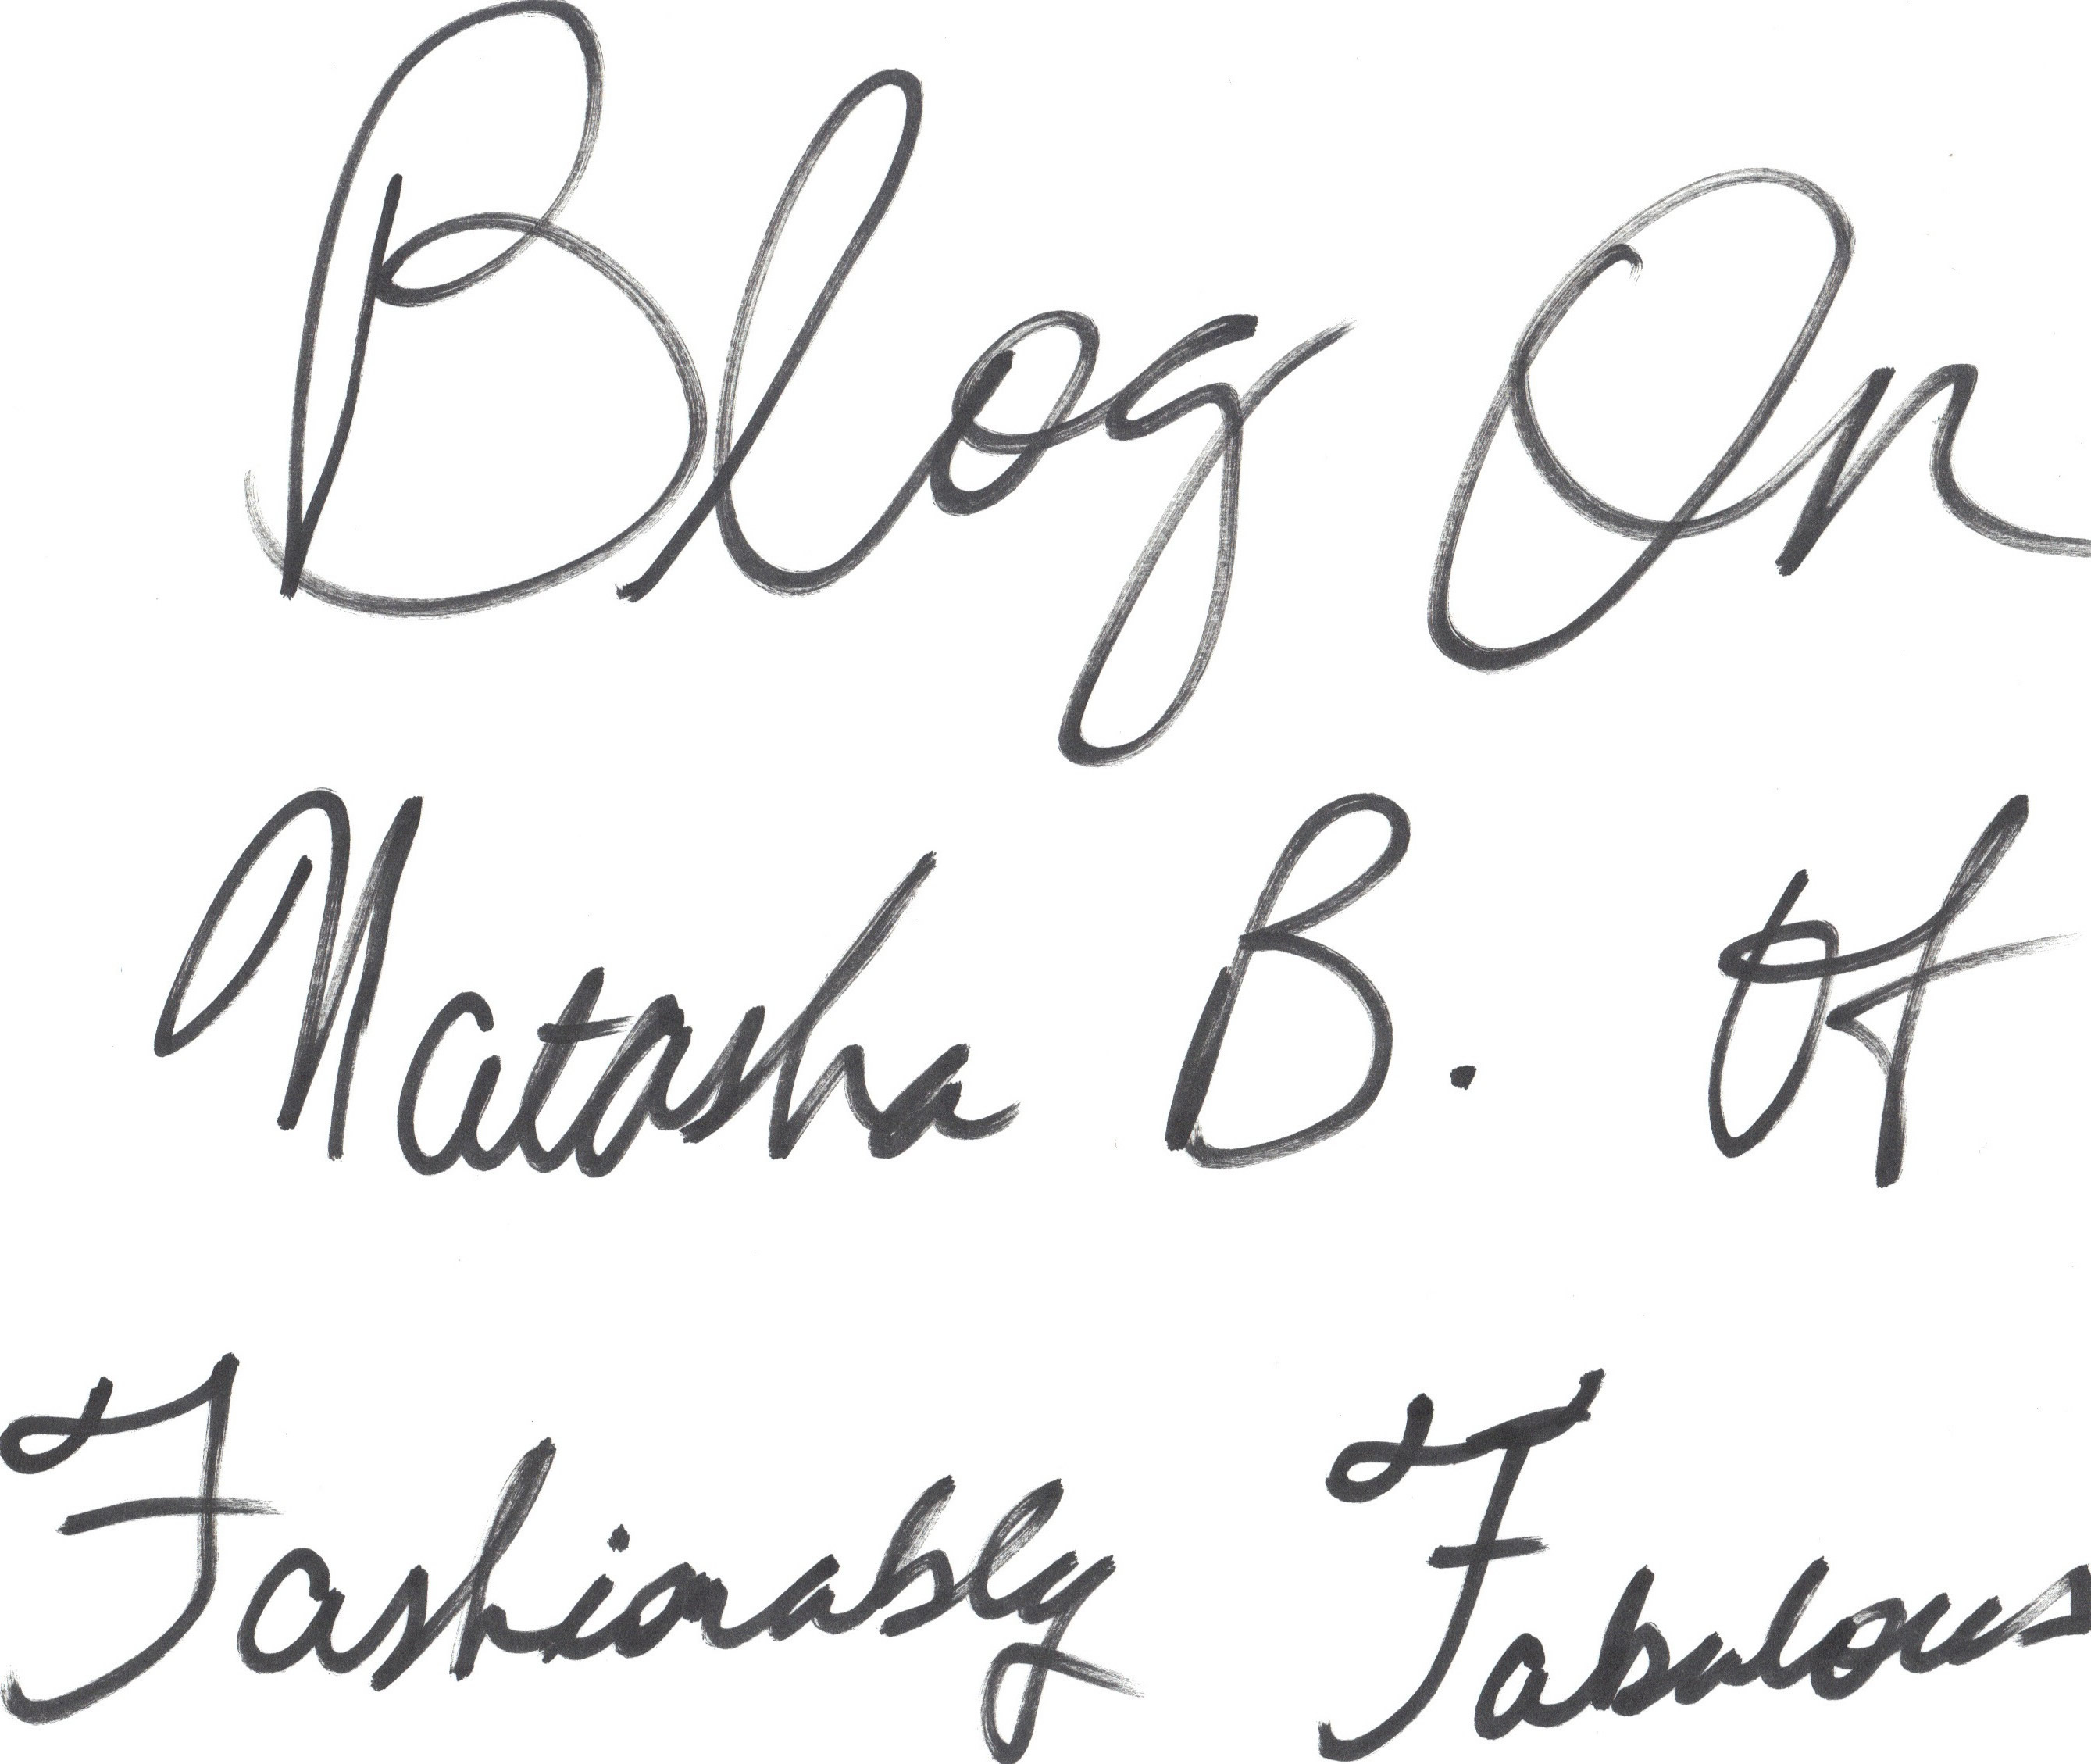 Blog On
Natasha B. Of
Fashionably Fabulous